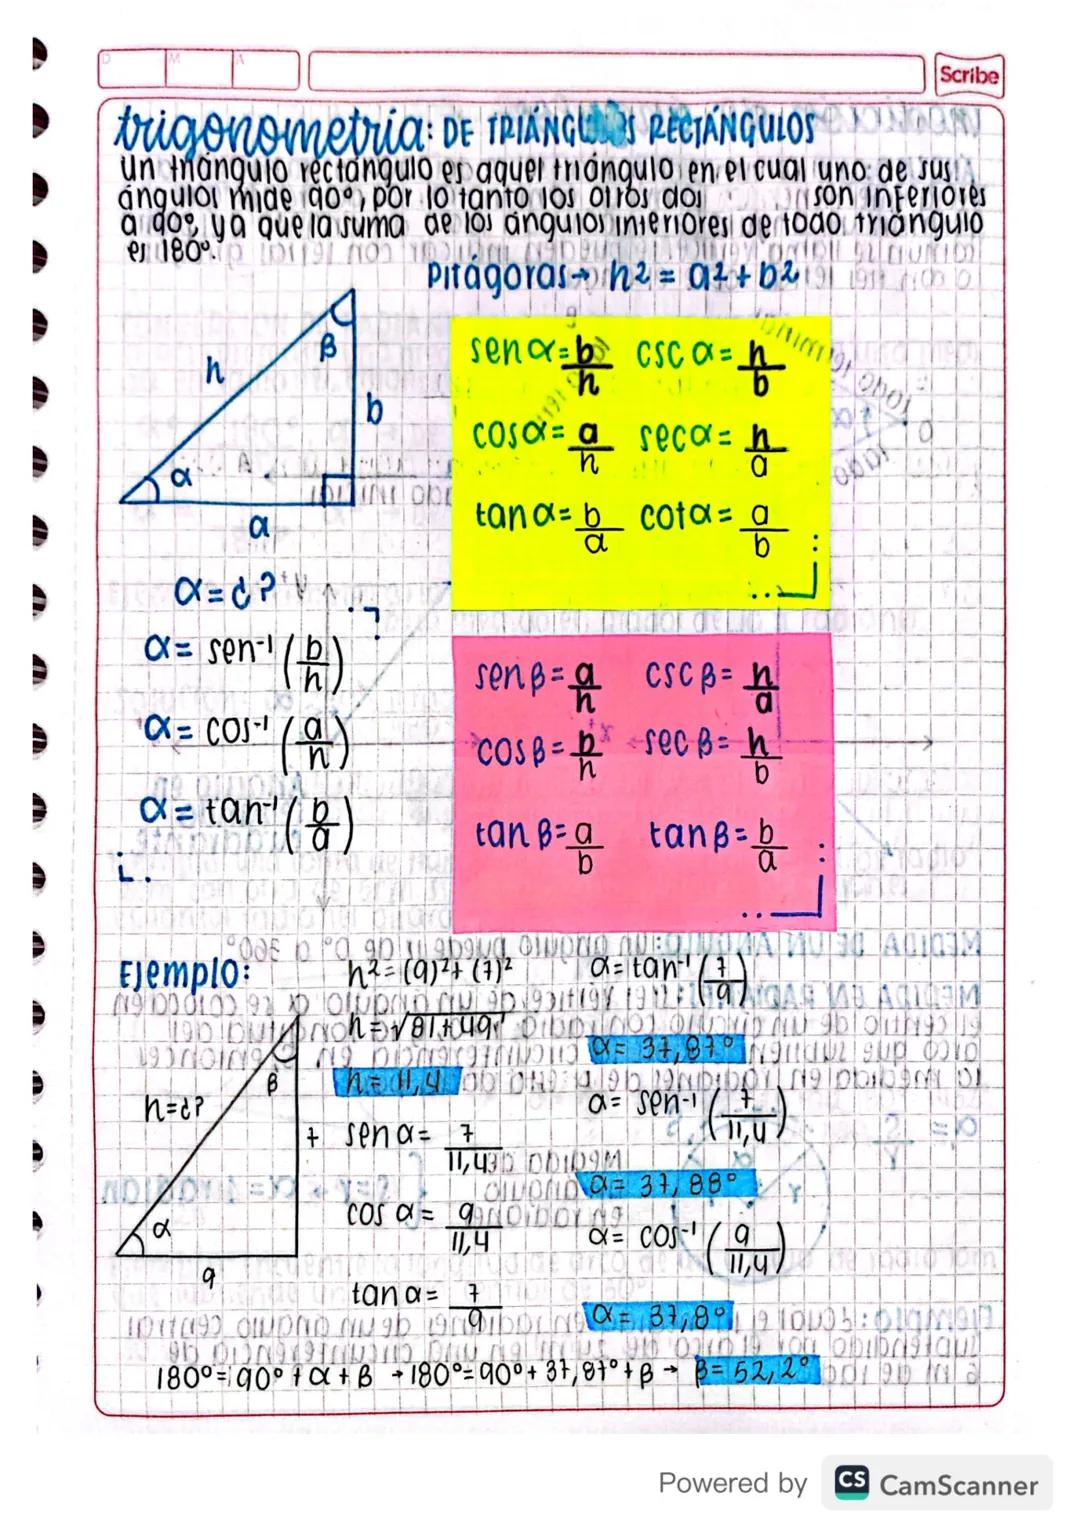 D M A
Scribe
trigonometría: DE TRIÁNGULOS RECTÁNGULOS
un triángulo rectángulo es aquel triángulo en el cual uno de sus
ángulos mide 90°, por lo tanto los otros dos son inferiores
a 90°, ya que la suma de los ángulos interiores de todo triángulo
es 180°.
Pitágoras → h² = a² + b²
h
β
b
α
a
sen α = b/h csc α = h/b
cos α = a/h sec α = h/a
tan α = b/a cot α = a/b
α = ¿?
α = sen⁻¹ (b/h)
α = cos⁻¹ (a/h)
α = tan⁻¹ (b/a)
sen β = a/h csc β = h/a
cos β = b/h sec β = h/b
tan β = a/b tan β = b/a
Ejemplo:
h=¿?
β
7
α
9
h² = (9)² + (7)²
h = √81+49
h = 11,4
sen α = 7/11,4
cos α = 9/11,4
tan α = 7/9
α = tan⁻¹ (7/9)
α = 37,87°
α = sen⁻¹ (7/11,4)
α = 37,88°
α = cos⁻¹ (9/11,4)
α = 37,8°
180° = 90° + α + β → 180° = 90° + 37,87° + β → β = 52,2°
Powered by CS CamScanner